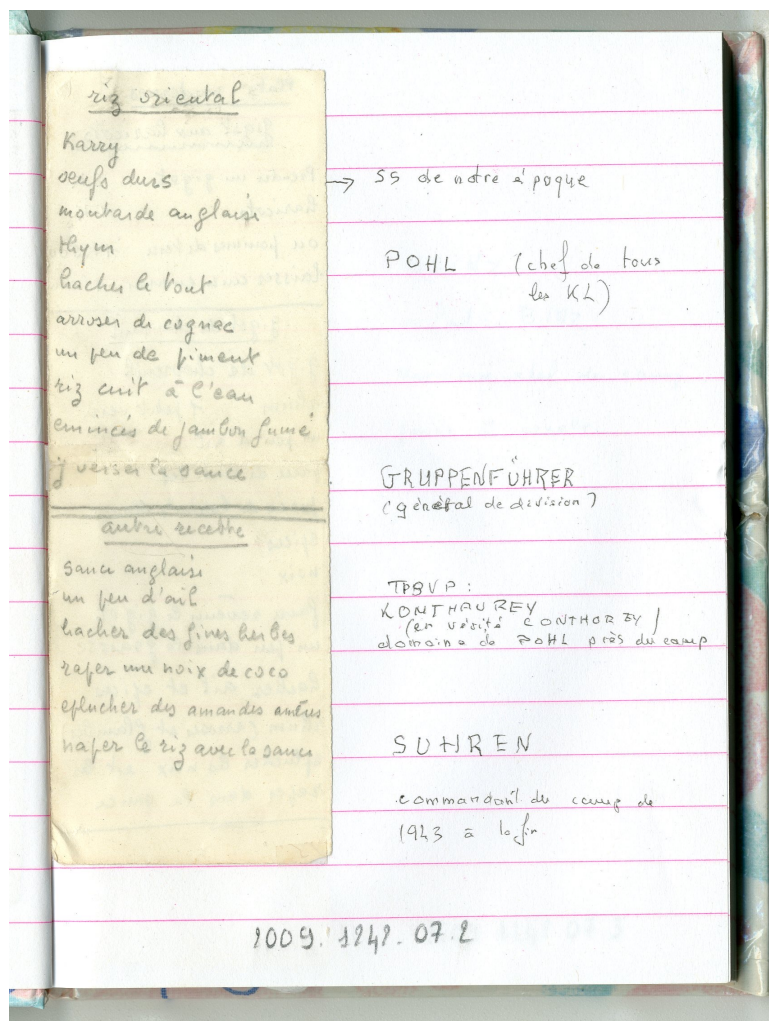 riz oriental
Karry
oeufs durs
moutarde anglaise
thym
hacher le tout
arroser de cognac
un peu de piment
riz cuit à l'eau
emincés de jambon fumé
y verser la sauce
autre recette
sauce anglaise
un peu d'ail
hacher des fines herbes
raper une noix de coco
eplucher des amandes amères
naper le riz avec la sauce
→ SS de notre époque
POHL (chef de tous
les KL)
GRUPPENFÜHRER
(général de division)
KONTHAUREY
(en vérité CONTHOREY)
domaine de POHL près du camp
SUHREN
commandant du camp de
1943 à la fin
2009.1242.07.2